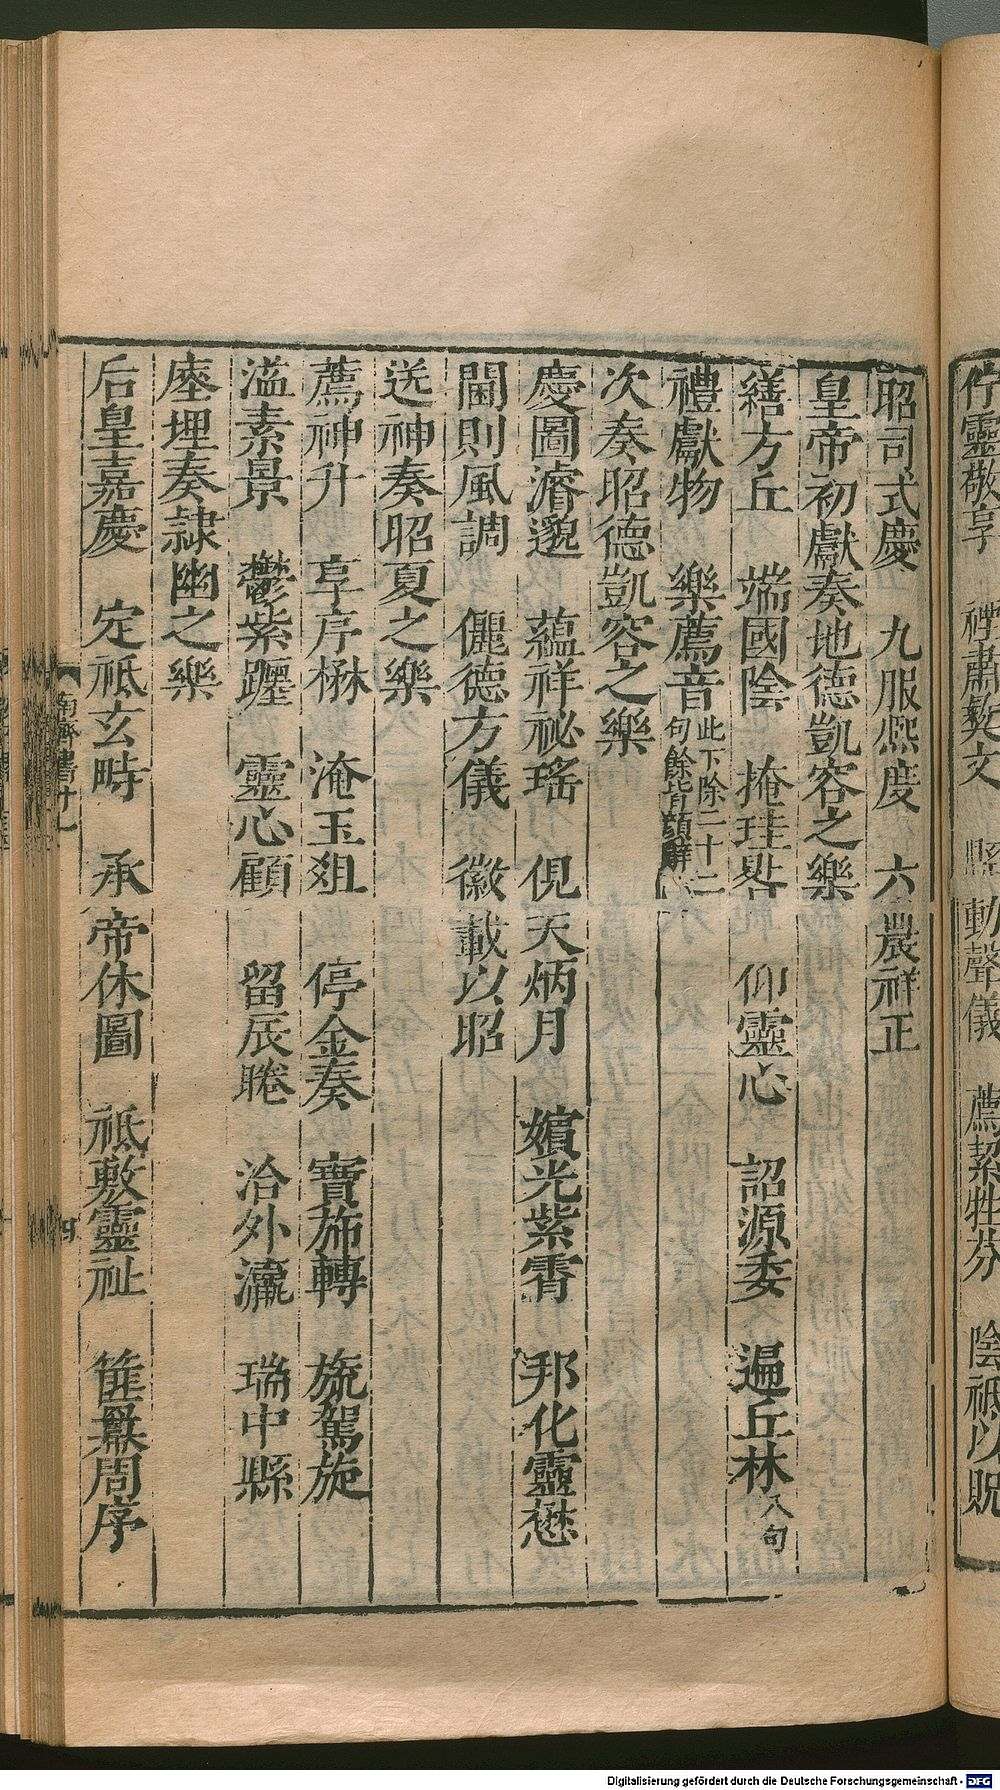 佇靈敬享　禋肅彝文　縣動聲儀　薦絜牲芬　陰祗以貺
昭司式慶　九服熙度　六農祥正
皇帝初獻奏地德凱容之樂
繕方丘　端國陰　掩珪晷　仰靈心　詔源委　遍丘林八句
禮獻物　樂薦音此下除二十二句餘皆顔辭
次奏昭德凱容之樂
慶圖濬邈　蘊祥祕瑤　俔天炳月　嬪光紫霄　邦化靈懋
閫則風調　儷德方儀　徽載以昭
送神奏昭夏之樂
薦神升　享序楙　淹玉俎　停金奏　寶斾轉　旒駕旋
溘素景　鬱紫躔　靈心顧　留辰睠　洽外瀛　瑞中縣
瘞埋奏隷幽之樂
后皇嘉慶　定祗玄畤　承帝休圖　祗敷靈祉　篚羃周序
南齊書十一
四
Digitalisierung gefördert durch die Deutsche Forschungsgemeinschaft - DFG